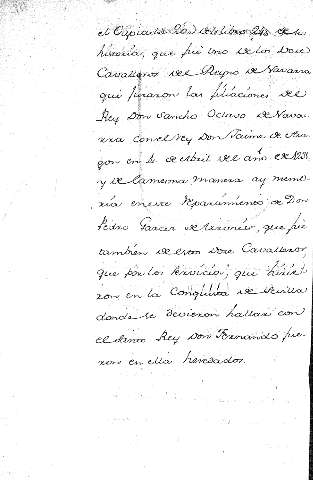 el Capitulo 20 de el Libro 2º de su
historia, que fue uno de los Doze
Cavalleros del Reyno de Navarra
que juraron las filiaciones del
Rey Don Sancho Octavo de Nava
rra con el Rey Don Jaime de Ara
gon en 4 de Abril del año de 1231
y de la mesma manera ay memo
ria en este Repartimiento de Don
Pedro Garces de que fue
tambien de estos Doze Cavalleros,
que por los servicios, que hicie
ron en la Conquista de Sevilla
donde se devieron hallar con
el Señor Rey Don Fernando fue
ron en ella heredados.